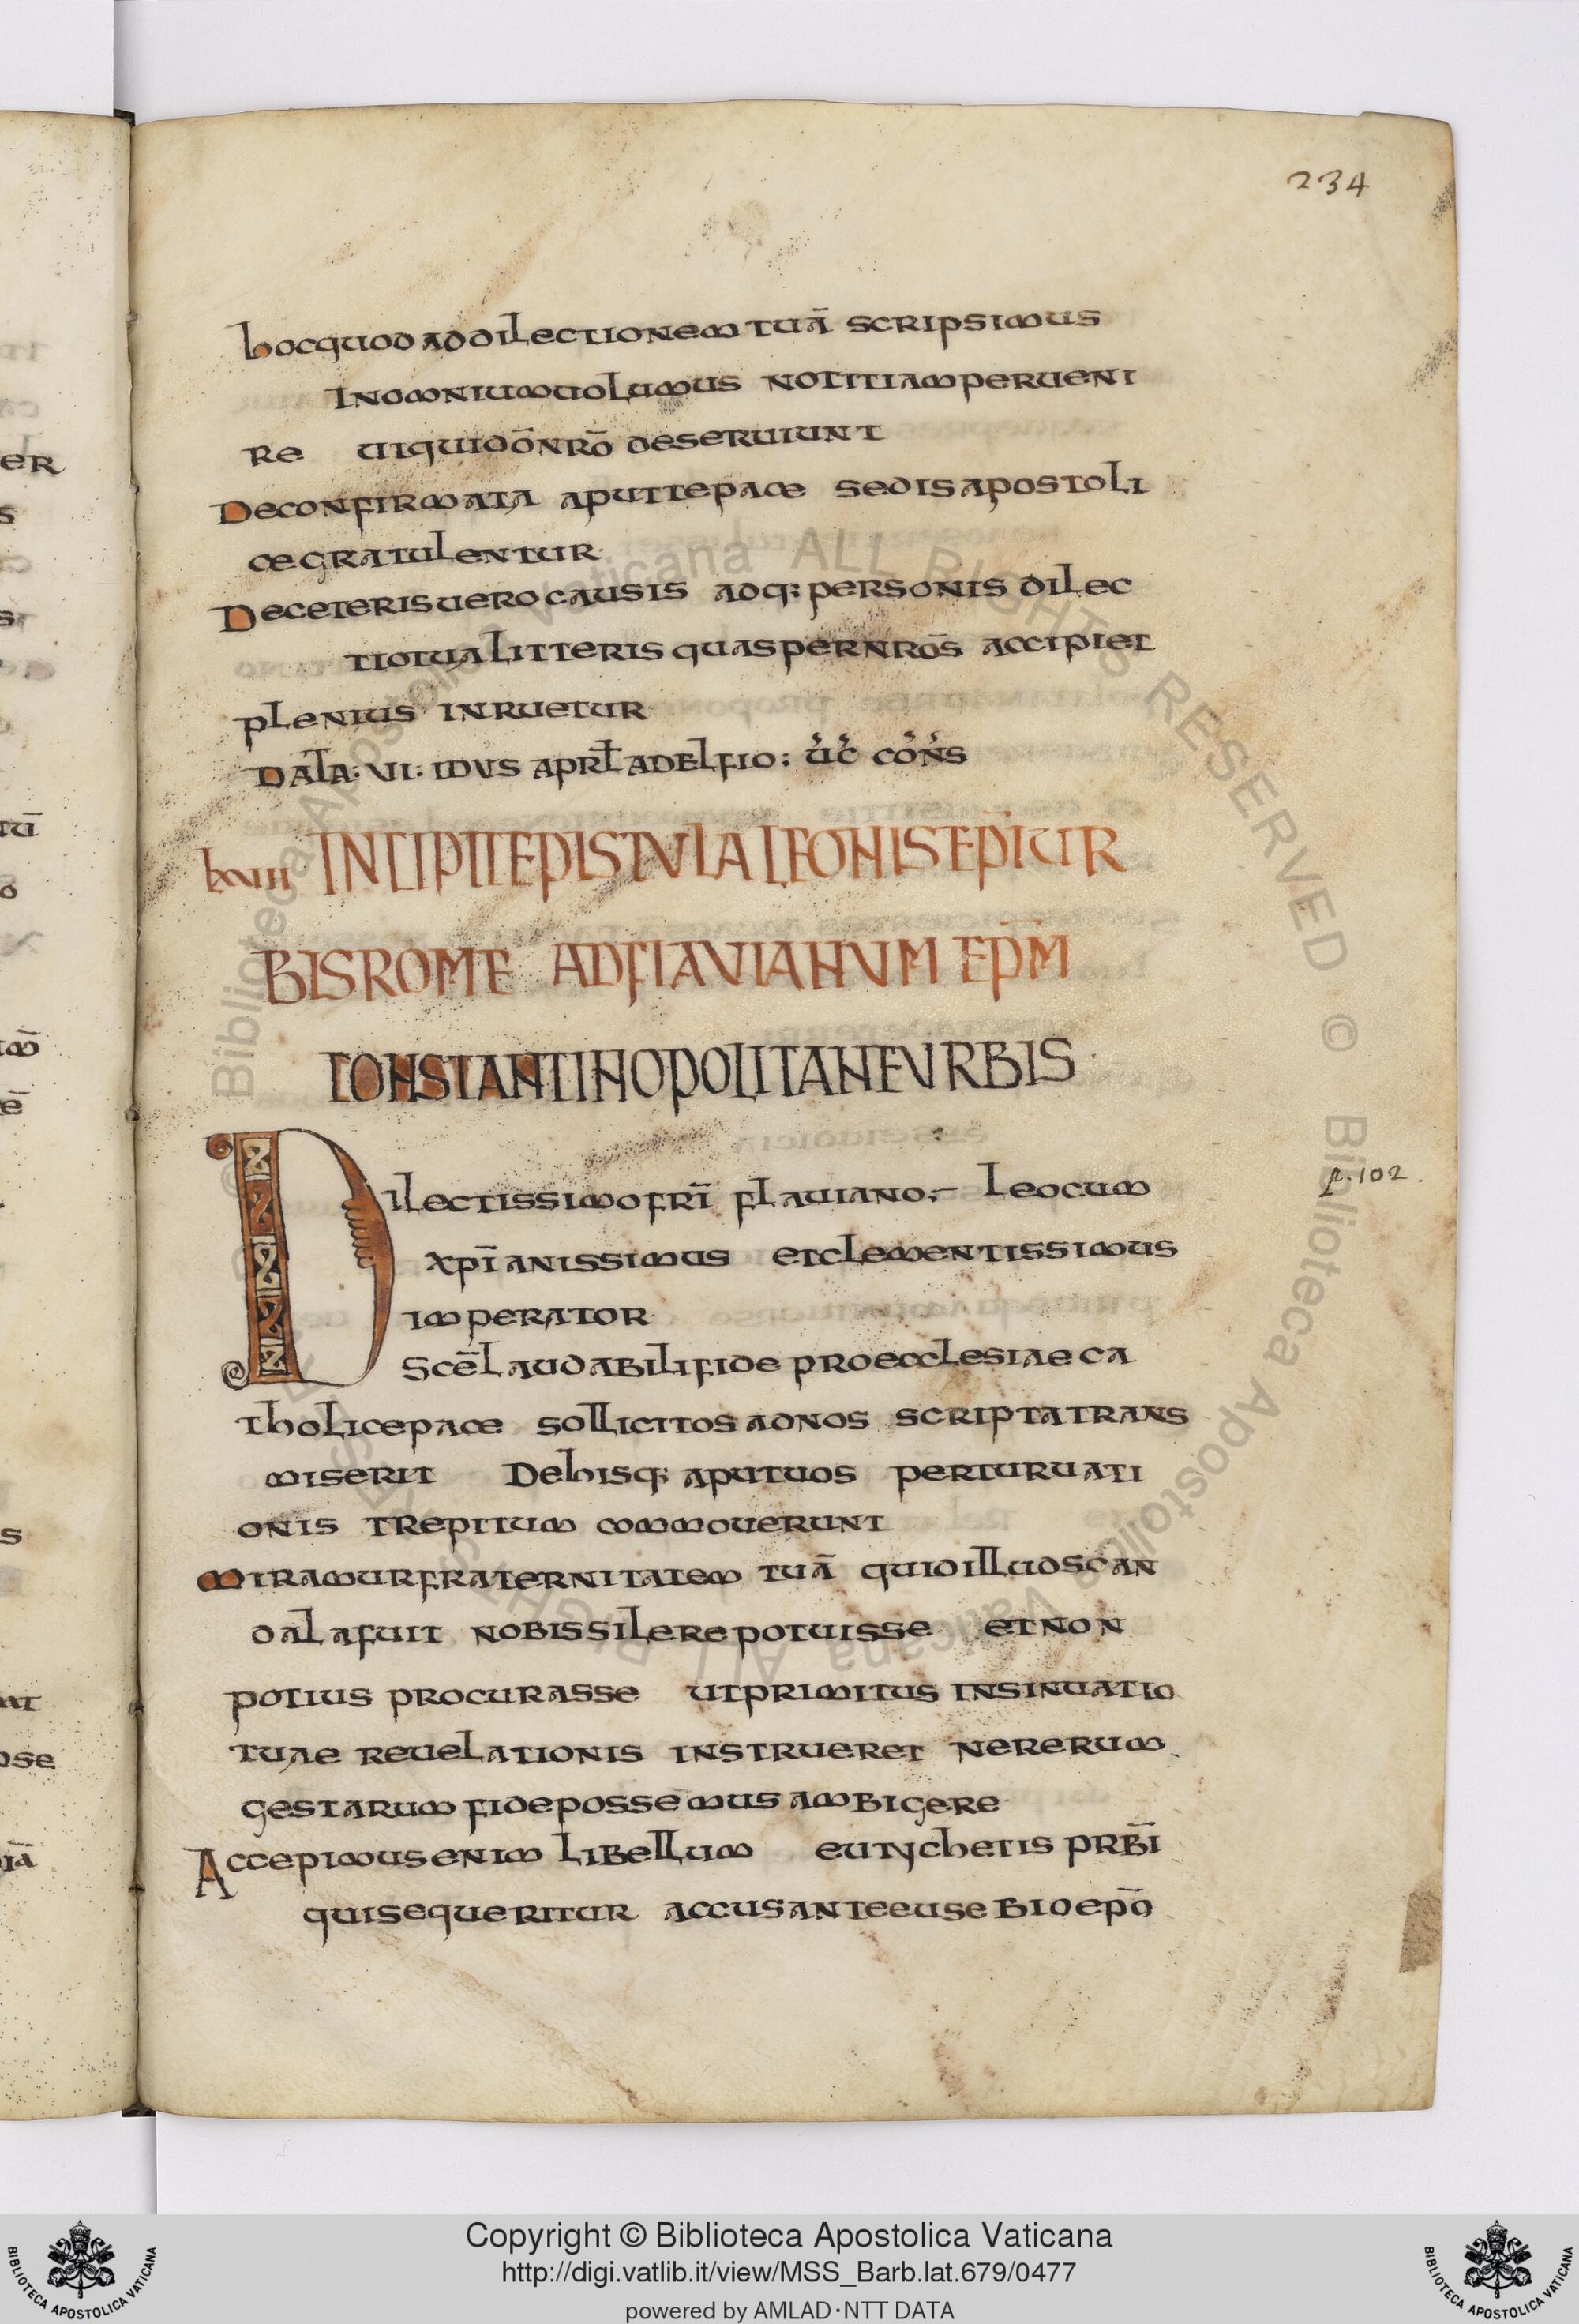 234
hocquodaddilectionem tuā scripsimus
inomniumuolumus notitiamperueni
re utquidōnrō deseruiunt
Deconfirmata aputtepace sedisapostoli
cegratulentur
Deceterisuero causis adq; personis dilec
tiotua litteris quaspernrōs accipiet
plenius inruetur
Data: VI: idus aprł adelfio: uc cons
lxviii INCIPITEPISTVLA LEONISEPĪUR
BISROME ADFLAVIANVM EPM
CONSTANTINOPOLITANEVRBIS
Dilectissimofrī flauiano; leocum
xpīanissimus etclementissimus
imperator
Scē laudabilifide proecclesiae ca
tholicepace sollicitos adnos scriptatrans
miserit Dehisq; aputuos perturuati
onis trepitum commouerunt
miramurfraternitatem tuā quidilludscan
dalafuit nobissilerepotuisse etnon
potius procurasse utprimitus insinuatio
tuae reuelationis instrueret nererum
gestarum fidepossemus ambigere
Accepimusenim libellum eutychetis prbī
quisequeritur accusanteeusebioepō
p. 102.
er
s
tū
o
ē
s
ose
Copyright © Biblioteca Apostolica Vaticana
http://digi.vatlib.it/view/MSS_Barb.lat.679/0477
powered by AMLAD·NTT DATA
BIBLIOTECA APOSTOLICA VATICANA
BIBLIOTECA APOSTOLICA VATICANA